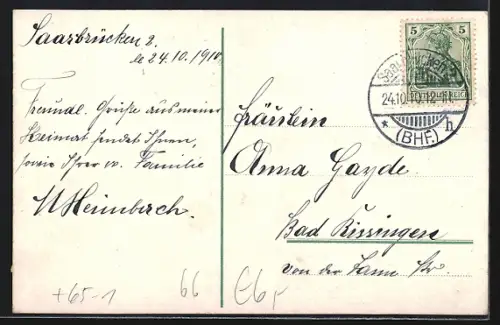 Saarbrücken 2.
le 24.10.1910
Freundl. Grüße aus meiner
Heimat sendet Ihnen,
sowie Ihrer w. Familie
M Heimbach.
Fräulein
Anna Gayde
Bad Kissingen
von der Tann Str.
5 5
SAARBRÜCKEN
24.10.10.12-1N.
* (BHF.) h
+65-1
66